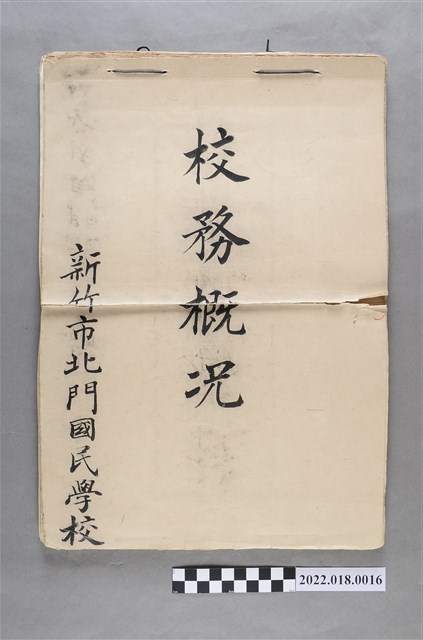 校務概況
新竹市北門國民學校
2022.018.0016